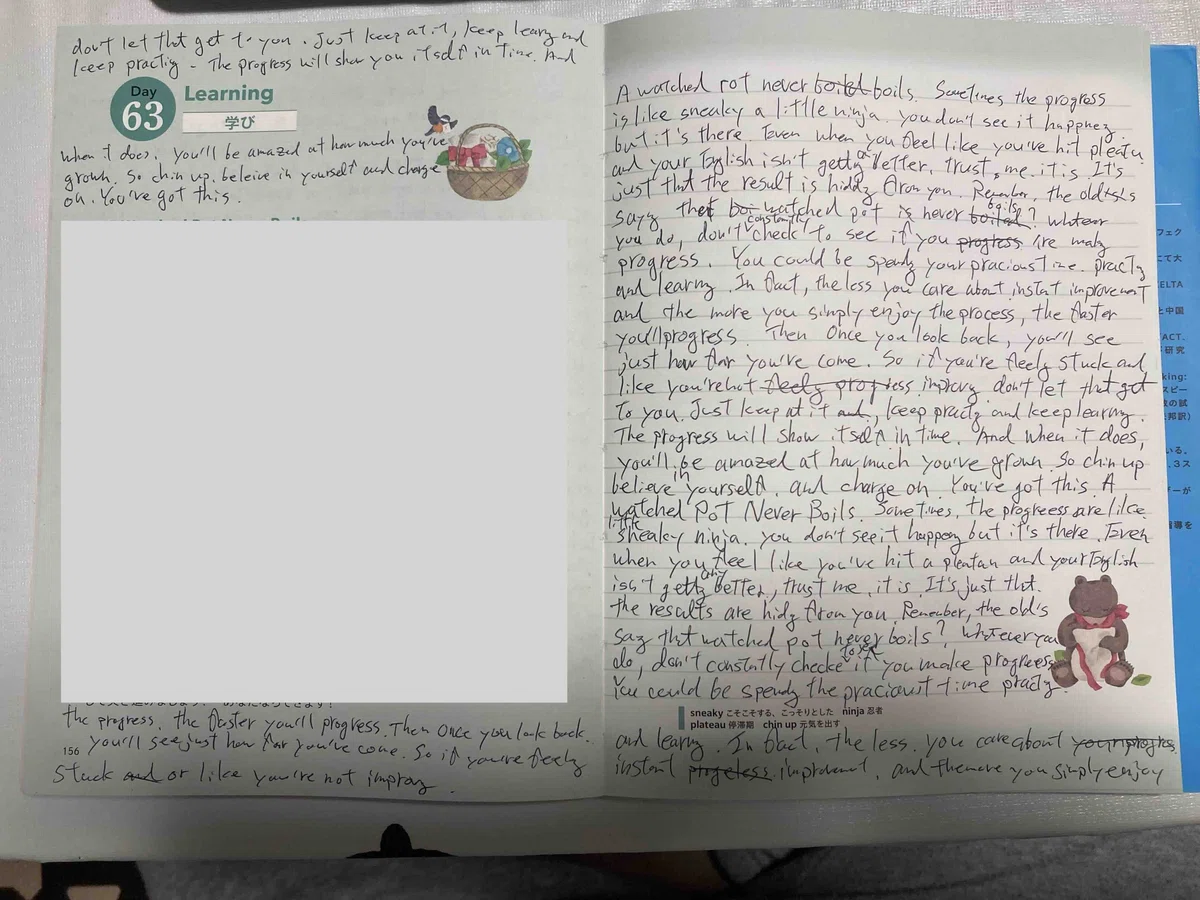 don't let tht get to you. Just keep at it, keep learng and
keep practig - The progress will show you itself in time. And
Day
63
Learning
学び
when it does. you'll be amazed at how much you've
grown. So chin up. beleive in yourself and charge
on. You've got this.
the progress. the faster you'll progress. Then Once you look back.
156
you'll see just how far you've come. So if you're feelg
Stuck and or like you're not improvg.
A watched pot never boiled boils. Sometimes the progress
is like sneaky a little ninja. you don't see it happneg.
but it's there. Even when you feel like you've hit pleatu
and your English isn't gettg better, trust me, it is. It's
just tht the result is hiddg from you. Remember, the old
says thet boi watched pot is never boiled boils? Whatever
you do, don't constantly check to see if you progress 're makg
progress. You could be spendg your pracious time. practg
and learng. In fact, the less you care about instant improvement
and the more you simply enjoy the process, the faster
you'll progress. Then Once you look back, you'll see
just how far you've come. So if you're feelg stuck and
like you're not feelg progress improvg. don't let that get
to you. Just keep at it and, keep practg and keep learng.
The progress will show itself in time. And when it does,
you'll be amazed at how much you've grown. So chin up
believe in yourself, and charge on. You've got this. A
watched Pot Never Boils. Sometimes, the progreess are like
little sneaky ninja. you don't see it happeng but it's there. Even
when you feel like you've hit a pleatau and your English
isn't gettg any better, trust me, it is. It's just tht.
the results are hidg from you. Remember, the old's
say tht watched pot never boils? Whatever you
do, don't constantly checke to see if you make progreess
You could be spendg the pracioust time practg.
sneaky こそこそする、こっそりとした ninja 忍者
plateau 停滞期 chin up 元気を出す
and learng. In fact, the less. you care about your progres
instant progeless improvment, and the more you simply enjoy